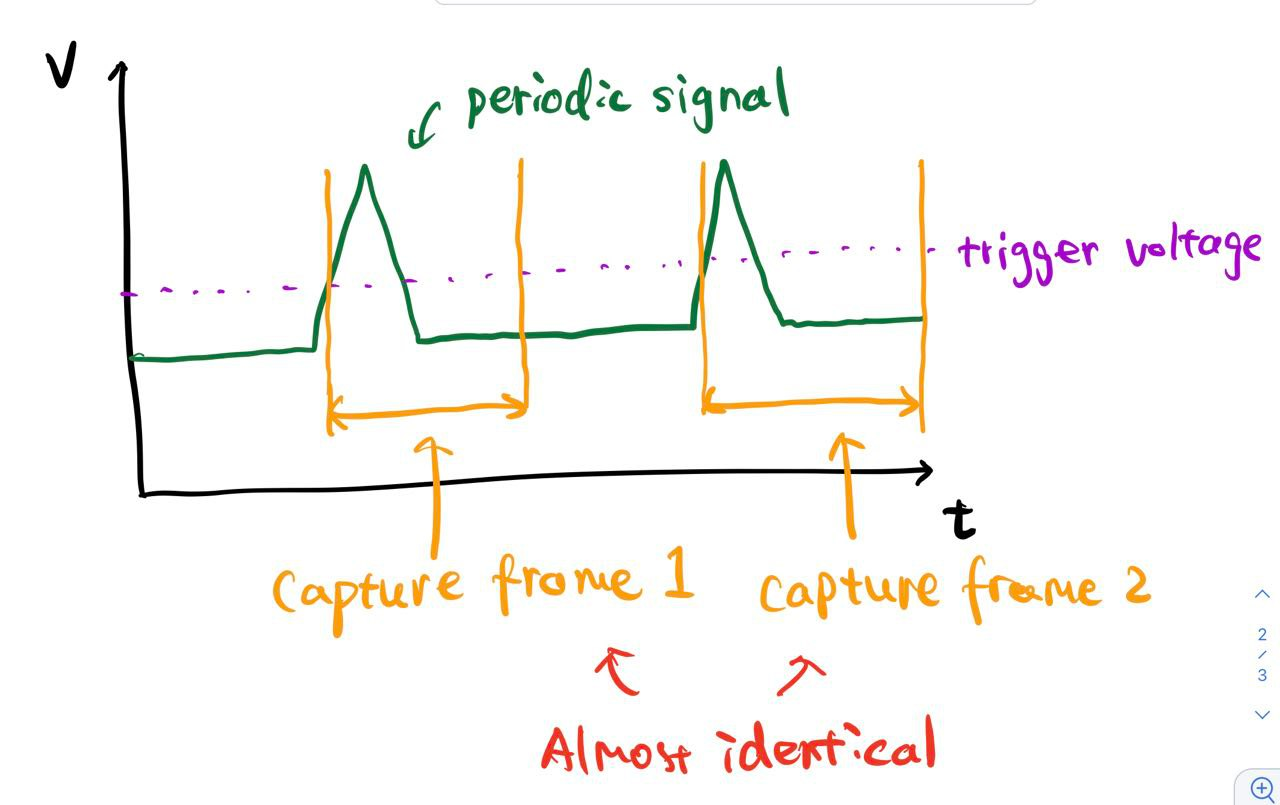 V
periodic signal
trigger voltage
t
Capture frame 1
Capture frame 2
Almost identical
2
/
3